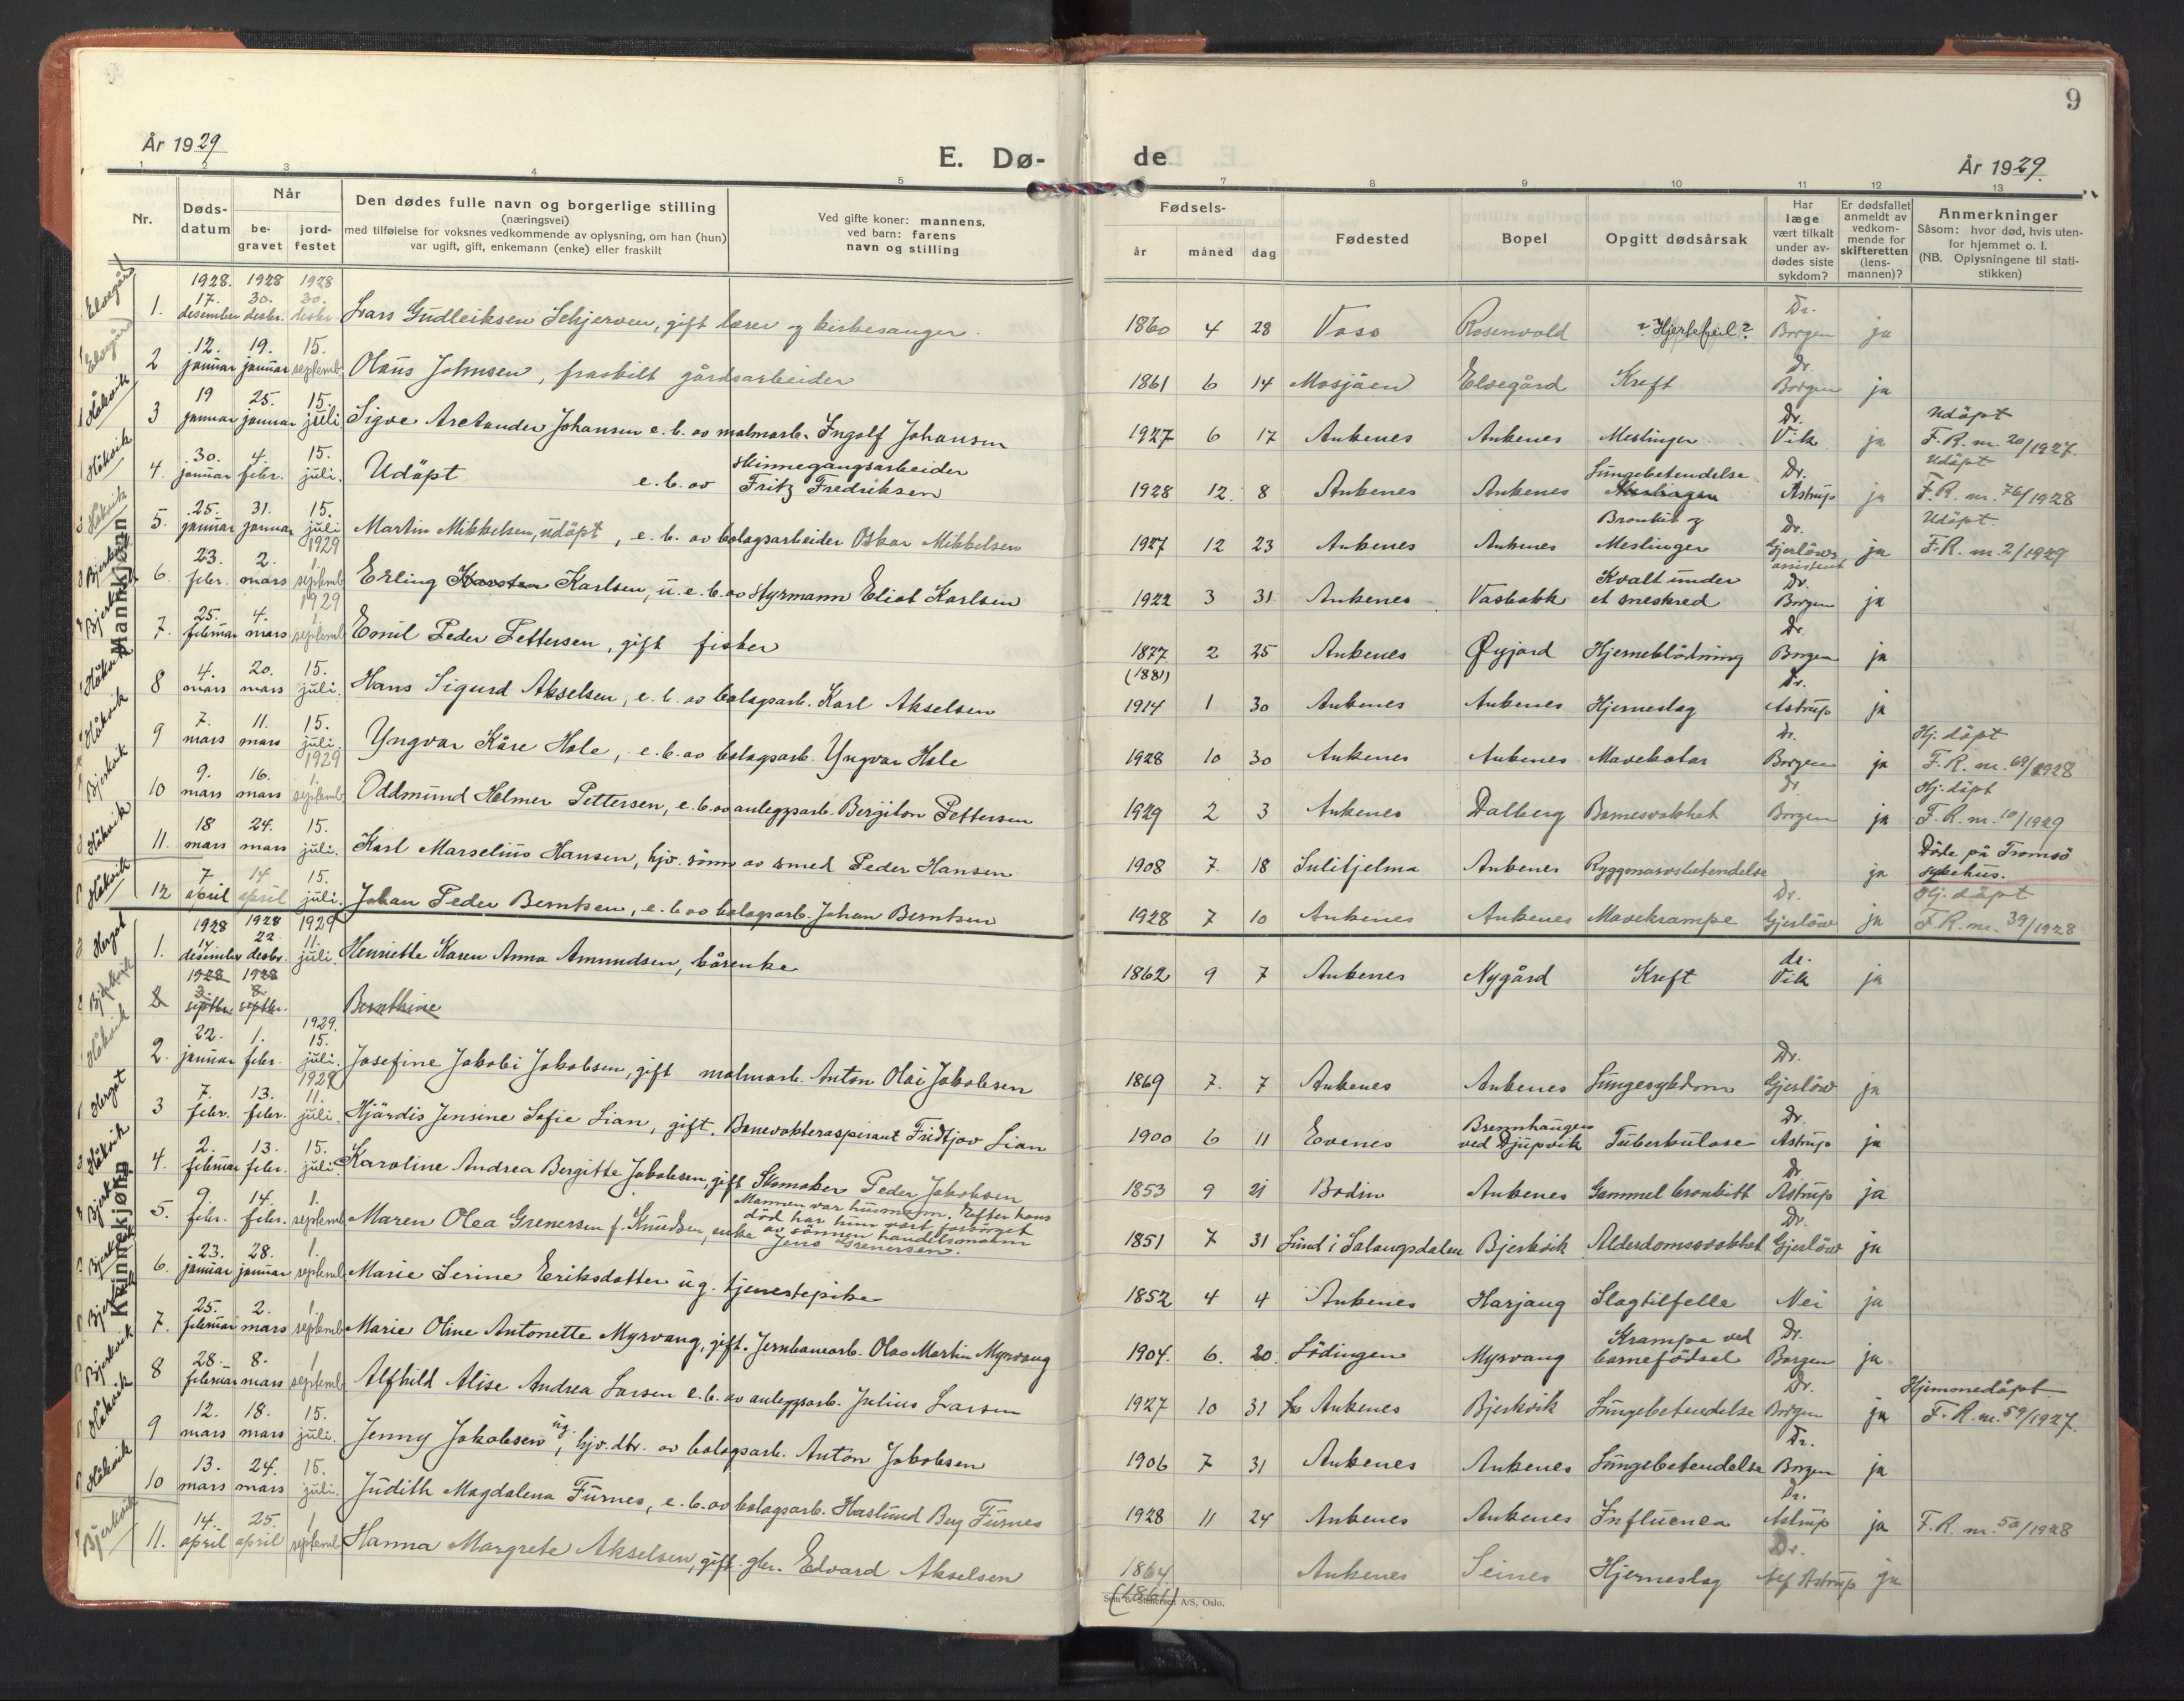 9
År 1929
E. Dø-
de
År 1929.
1 2 3 4 5 7 8 9 10 11 12 13
Nr.
Døds-
datum
Når
be-
gravet
jord-
festet
Den dødes fulle navn og borgerlige stilling
(næringsvei)
med tilføielse for voksnes vedkommende av oplysning, om han (hun)
var ugift, gift, enkemann (enke) eller fraskilt
Ved gifte koner: mannens,
ved barn: farens
navn og stilling
Fødsels-
år måned dag
Fødested
Bopel
Opgitt dødsårsak
Har
læge
vært tilkalt
under av-
dødes siste
sykdom?
Er dødsfallet
anmeldt av
vedkom-
mende for
skifteretten
(lens-
mannen)?
Anmerkninger
Såsom: hvor død, hvis uten-
for hjemmet o. l.
(NB. Oplysningene til stati-
stikken)
Mannkjønn
1928. 1928 1928
17. 30. 30. Dr.
Elvegård 1. desember desbr. desbr. Lars Gudleiksen Schjerven, gift lærer og kirkesanger. 1860 4 28 Voss Rosenvold ? Hjertefeil? Borgen ja
12. 19. 15. Dr.
Elvegård 2 januar januar septemb. Olaus Johnsen, fraskilt gårdsarbeider 1861 6 14 Mosjöen Elvegård Kreft Borgen ja
19 25. 15. Dr. Udöpt
Håkvik 3 januar januar juli Sigve Johansen e. b. av malmarb. Ingolf Johansen 1927 6 17 Ankenes Ankenes Meslinger Vik ja F. R. nr. 20/1927.
30. 4. 15. skinnegangsarbeider Lungebetendelse Dr. Udöpt
Håkvik 4. januar febr. juli. Udöpt e. b. av Fritz Fredriksen 1928 12. 8 Ankenes Ankenes Meslinger Astrup ja F. R. nr. 76/1928
25. 31. 15. Bronkit og Dr. Udöpt.
Håkvik 5. januar januar juli Martin Mikkelsen, udöpt, e. b. av bolagsarbeider Oskar Mikkelsen 1927 12 23 Ankenes Ankenes Meslinger Gjerlöws assistent ja F. R. nr. 2/1929
1929
23 2. 1. Kvalt under Dr.
Bjerkvik 6. febr. mars septemb Erling Karsten Karlsen, u. e. b. av Styrmann Eliot Karlsen 1922 3 31 Ankenes Vasbakk et sneskred Borgen ja
1929
25. 4. 1. Dr.
Bjerkvik 7. februar mars septemb Emil Peder Pettersen, gift fisker 1877 (1881) 2 25 Ankenes Öyjord Hjerneblödning Borgen ja
4. 20. 15. Dr.
Håkvik 8 mars mars juli. Hans Sigurd Akselsen, e. b. av bolagsarb. Karl Akselsen 1914 1 30 Ankenes Ankenes Hjerneslag Astrup ja
7. 11. 15. Dr. Hj. döpt
Håkvik 9 mars mars juli. Yngvar Kåre Hole, e. b. av bolagsarb. Yngvar Hole 1928 10 30 Ankenes Ankenes Mavekatar Borgen ja F. R. nr. 69/1928
1929
9. 16. 1. Dr. Hj. döpt
Bjerkvik 10 mars mars septemb Oddmund Helmer Pettersen, e. b. av anleggsarb. Bergiton Pettersen 1929 2 3 Ankenes Dalberg Barnesvakhet Borgen ja F. R. nr. 10/1929
18 24. 15. Döde på Tromsö
Håkvik 11. mars mars juli. Karl Marselius Hansen, hjv. sönn av smed Peder Hansen 1908 7. 18 Sulitjelma Ankenes Ryggmarvsbetendelse ja sykehus.
7 14 15. Dr. Hj. döpt
Håkvik 12 april april juli. Johan Peder Berntsen, e. b. av bolagsarb. Johan Berntsen 1928 7 10 Ankenes Ankenes Mavekrampe Gjerlöw ja F. R. nr. 39/1928
Kvinnekjønn
1928 1928 1929
14 22 11. dr.
Herget 1. desember desbr. juli. Henriette Karen Anna Amundsen, kårenke 1862 9 7 Ankenes Nygård Kreft Vik ja
1928 1928
3. 8.
Bjerkvik 8 septbr. septbr. Bernthine
1929.
22. 1. 15. Dr.
Håkvik 2. januar febr. juli. Josefine Jakobi Jakobsen, gift malmarb. Anton Olai Jakobsen 1869 7. 7 Ankenes Ankenes Lungesykdom Gjerlöw ja
1929
7 13. 11. Brennhaugen Dr.
Herget 3 febr. febr. juli. Hjördis Jensine Sofie Lian, gift. Banevokteraspirant Fridtjov Lian 1900 6 11 Evenes ved Djupvik Tuberkulose Astrup ja
2. 13. 15. Dr
Håkvik 4. februar febr. juli Karoline Andrea Bergitte Jakobsen, gift Skomaker Peder Jakobsen 1853 9 21 Bodin Ankenes Gammel bronkitt Astrup ja
9. 14. 1. Mannen var husmann. Efter hans död har hun vært forsörget av sönnen handelsmann Jens Grenersen. Dr.
Bjerkvik 5. febr. febr. septemb Maren Olea Grenersen f. Knudsen, enke 1851 7 31 Lund i Salangsdalen Bjerkvik Alderdomssvakhet Gjerlöw ja
23. 28. 1.
Bjerkvik 6. januar januar septemb Marie Serine Eriksdatter ug. tjenestepike 1852 4 4 Ankenes Harjang Slagtilfelle Nei ja
25. 2. 1. Krampe ved Dr.
Bjerkvik 7. februar mars septemb Marie Oline Antonette Myrvang, gift. Jernbanearb. Olav Martin Myrvang 1904. 6. 20. Lödingen Myrvang barnefödsel Borgen ja
28. 8. 1. Dr. Hjemmedöpt
Bjerkvik 8 februar mars septemb Alfhild Alise Andrea Larsen e. b. av anleggsarb. Julius Larsen 1927 10 31 Ankenes Bjerkvik Lungebetendelse Borgen ja F. R. nr. 59/1927.
12. 18. 15. Dr.
Håkvik 9 mars mars juli. Jenny Jakobsen ug., hjv. dtr. av bolagsarb. Anton Jakobsen 1906 7 31 Ankenes Ankenes Lungebetendelse Borgen ja
13. 24. 15. Dr.
Håkvik 10 mars mars juli. Judith Magdalena Furnes, e. b. av bolagsarb. Haslund Berg Furnes 1928 11 24 Ankenes Ankenes Influensa Astrup ja F. R. nr. 50/1928
14. 25. 1. Dr.
Bjerkvik 11. april april septemb Hanna Margrete Akselsen, gift gbr. Edvard Akselsen 1864 (1861) Ankenes Seines Hjerneslag Alf Astrup ja
Sem & Stenersen A/S, Oslo.